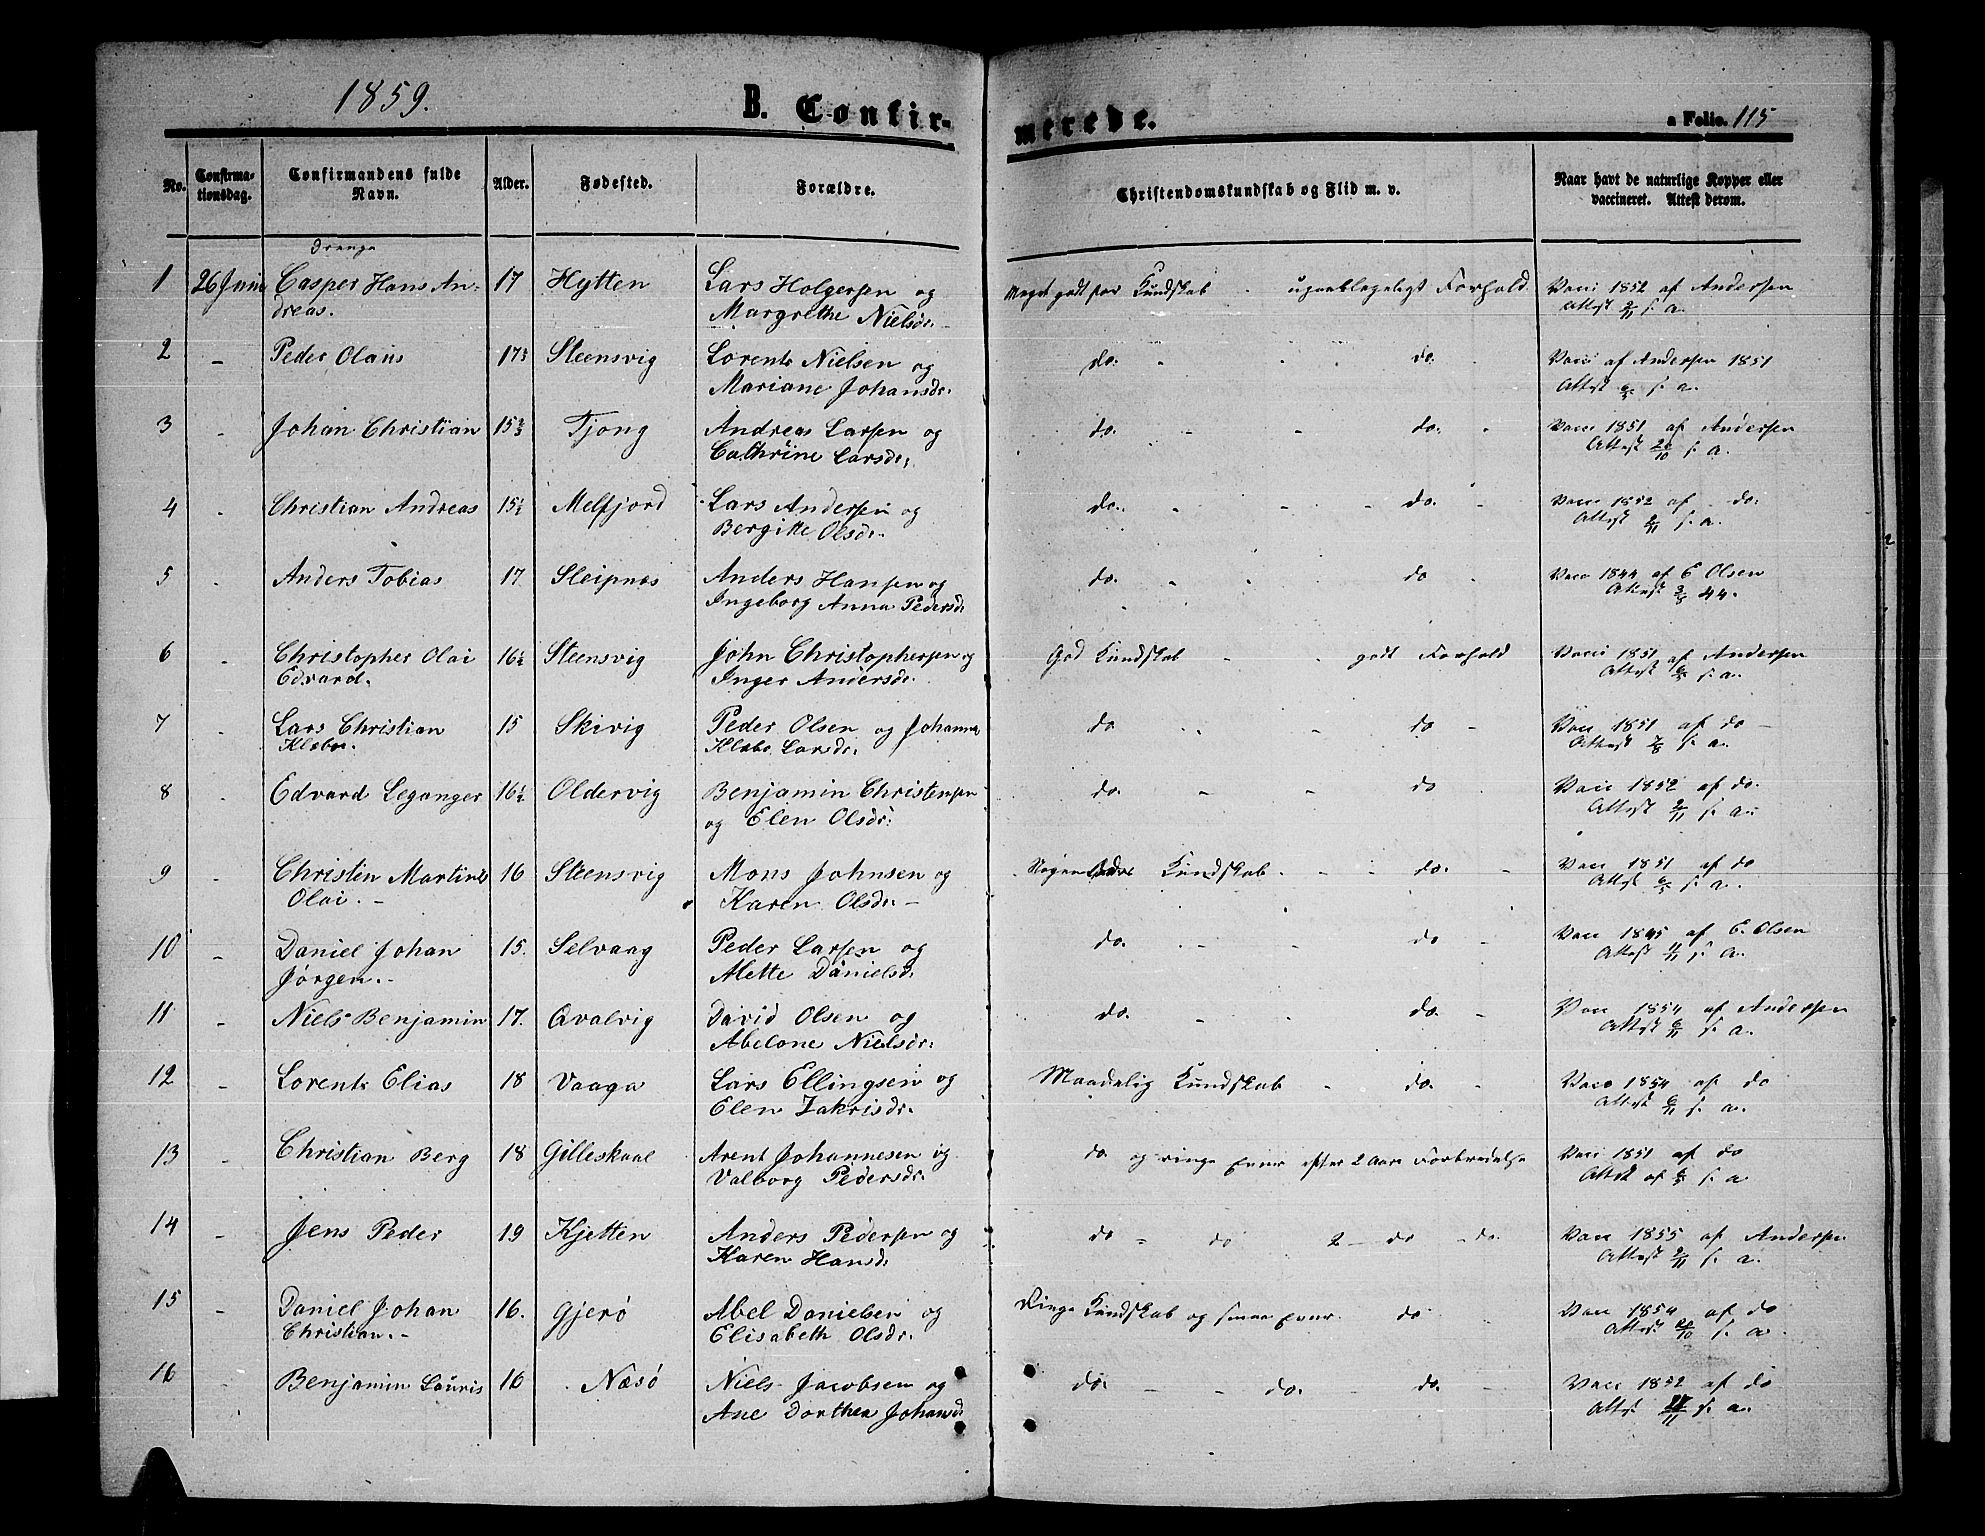 1859. B. Confir- merede. a Folio. 115
No. Confirma- Confirmandens fulde Alder. Fødested. Forældre. Christendomskundskab og Flid m. v. Naar havt de naturlige Kopper eller
tionsdag. Navn. vaccineret. Attest derom.
Drenge
1 26 Juni Casper Hans An- 17 Hytten Lars Holgersen og Meget godt for Kundskab - upaaklageligt Forhold. Vacci 1852 af Andersen
dreas. Margrethe Nielsdr. Attest 2/11 s. a.
2 - Peder Olaus 17 Steensvig Lorents Nielsen og do. - do. Vacci af Andersen 1851
Mariane Johansdr. Attest s. a.
3 - Johan Christian 15 Tjong Andreas Larsen og do. - - do. - Vacc 1851 af Andersen
Cathrine Larsdr. Attest s. a.
4 - Christian Andreas 15½ Melfjord Lars Andersen og do. - do. - Vacc 1852 af do.
Bergitte Olsdr. Attest 2/11 s. a.
5 - Anders Tobias 17. Sleipnes Anders Hansen og do. - do - Vacc 1844 af E Olsen
Ingeborg Anna Pedersd. Attest 44.
6 - Christopher Olai 16½ Steensvig John Christophersen og God Kundskab - - godt Forhold Vacci 1851 af Andersen
Edvard. Inger Andersdr. Attest s. a.
7 - Lars Christian 15 Skivig Peder Olsen og Johanna do - - do - Vacc 1851 af do -
Klæbo. Klæbo Larsdr. Attest s. a.
8 - Edvard Leganger 16½ Oldervig Benjamin Christensen do. - - do Vacc 1852 af do.
og Elen Olsdr. Attest 2/11 s. a.
9 - Christen Martines 16 Steensvig Mons Johnsen og Kundskab - - do. - Vacc 1851 af do
Olai. - Karen Olsdr. - Attest s. a.
10 - Daniel Johan 15. Selvaag Peder Larsen og do. - - do - Vacc 1845 af E. Olsen
Jörgen. - Mette Danielsd. Attest s. a.
11 - Niels Benjamin 17. Qvalvig David Olsen og do. - - do. - Vacc 1854 af Andersen
Abelone Nielsdr. Attest s. a.
12 - Lorents Elias 18 Vaaga Lars Ellingsen og Maadelig Kundskab - do. - Vacc 1854 af do
Elen Zakrisdr. Attest s. a.
13 - Christian Berg 18 Gilleskaal Arent Johannesen og do og ringe Evner efter 2 Aars Forberedelse Vacc 1851 af do
Valborg Pedersdr. Attest af s. a
14 - Jens Peder 19 Kjetten Anders Pedersen og do - do 2 - do - do. Vacc 1855 af Andersen
Karen Hansd. Attest 2/11 s. a.
15 - Daniel Johan 16. Gjerö Abel Danielsen og Ringe Kundskab og smaa Evner. do - Vacc 1854 af do
Christian. - Elisabeth Olsdr. Attest s. a.
16 Benjamin Lauris 16 Næsö Niels Jacobsen og do. - - do. - do. - Vacc 1852 af do
Ane Dorthea Johansd. Attest s. a.